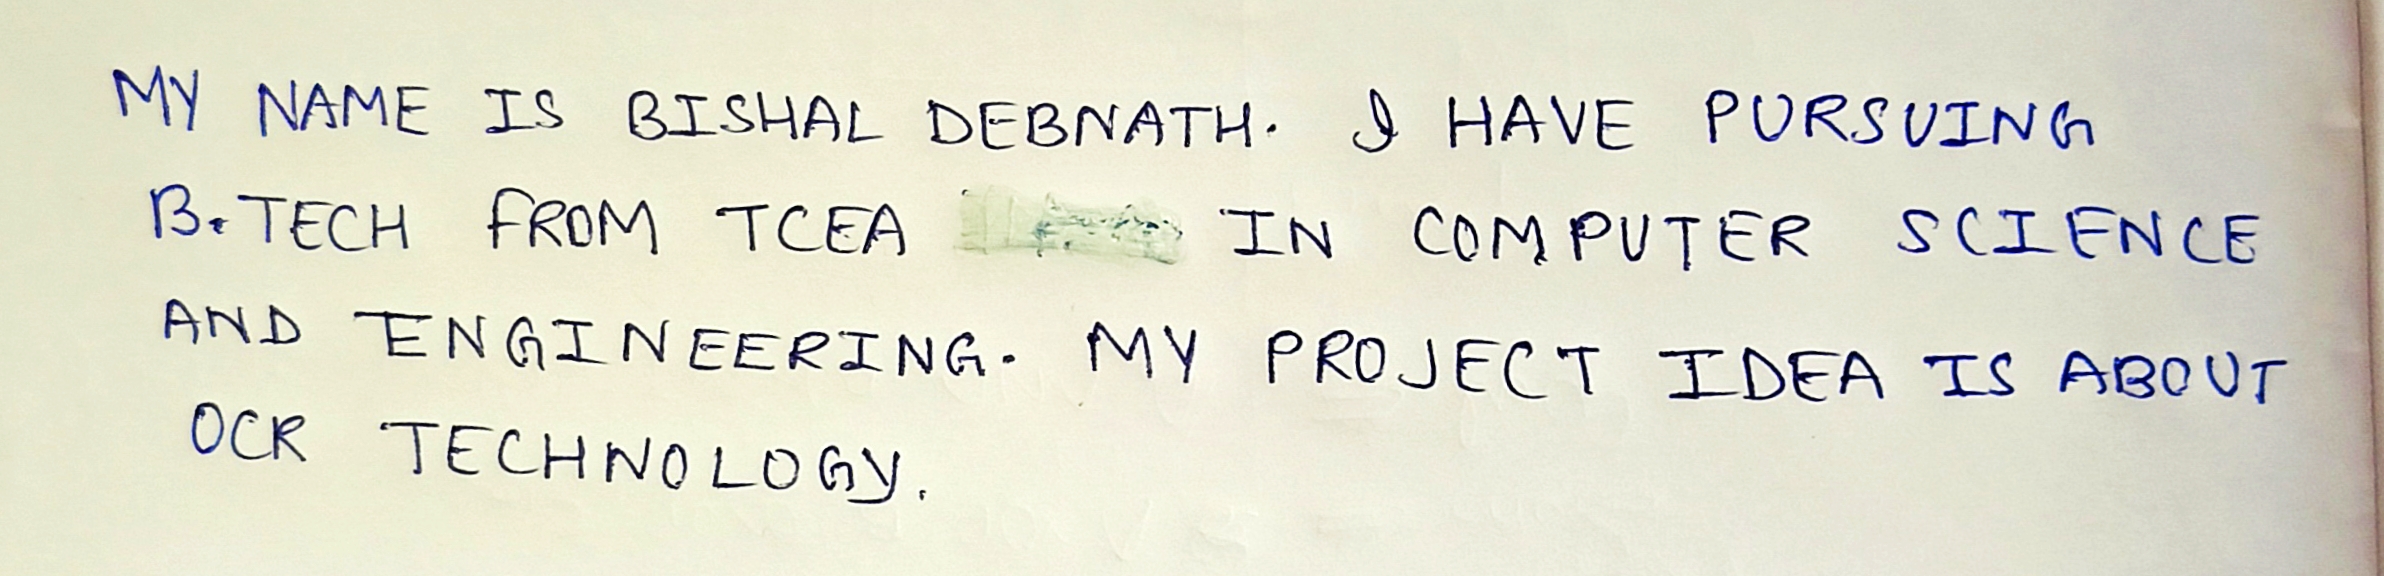 MY NAME IS BISHAL DEBNATH. I HAVE PURSUING
B.TECH FROM TCEA IN COMPUTER SCIENCE
AND ENGINEERING. MY PROJECT IDEA IS ABOUT
OCR TECHNOLOGY.